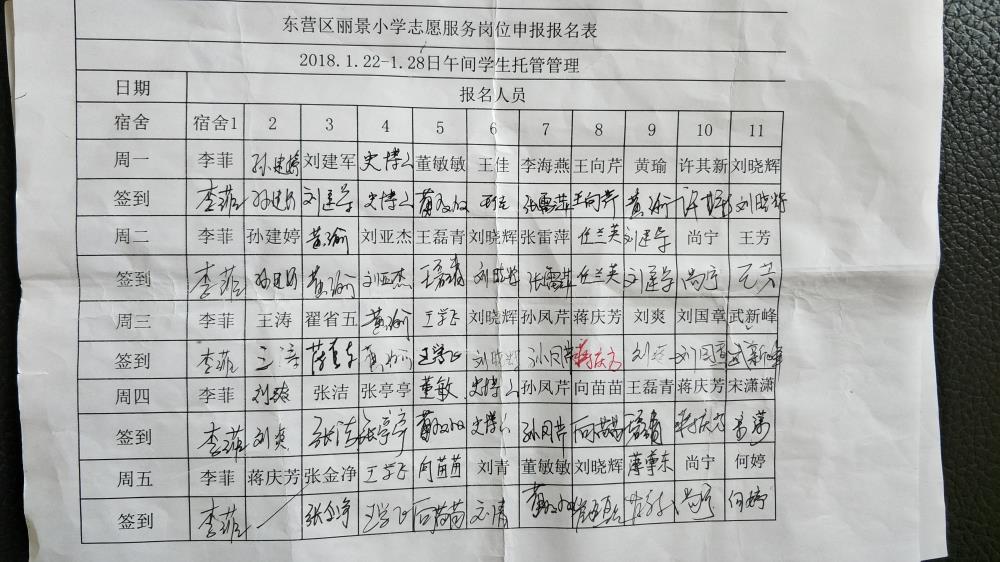 东营区丽景小学志愿服务岗位申报报名表
2018.1.22-1.28日午间学生托管管理
日期 报名人员
宿舍 宿舍1 2 3 4 5 6 7 8 9 10 11
周一 李菲 孙建婷 刘建军 董敏敏 王佳 李海燕 王向芹 黄瑜 许其新 刘晓辉
签到 李菲 孙建婷 刘建军 张雷萍 王向芹 黄瑜 刘晓辉
周二 李菲 孙建婷 黄瑜 刘亚杰 王磊青 刘晓辉 张雷萍 任兰英 刘建军 尚宁 王芳
签到 李菲 孙建婷 黄瑜 刘亚杰 王磊青 刘晓辉 张雷萍 任兰英 刘建军 尚宁 王芳
周三 李菲 王涛 翟省五 黄瑜 王学正 刘晓辉 孙凤芹 蒋庆芳 刘爽 刘国章 武新峰
签到 李菲 王涛 黄瑜 王学正 刘晓辉 孙凤芹 蒋庆方 刘爽 刘国章 武新峰
周四 李菲 刘爽 张洁 张亭亭 董敏 孙凤芹 向苗苗 王磊青 蒋庆芳 宋潇潇
签到 李菲 刘爽 张洁 张亭亭 孙凤芹 向苗苗 蒋庆芳
周五 李菲 蒋庆芳 张金净 王学正 向苗苗 刘青 董敏敏 刘晓辉 尚宁 何婷
签到 李菲 张金净 王学正 向苗苗 刘青 尚宁 何婷